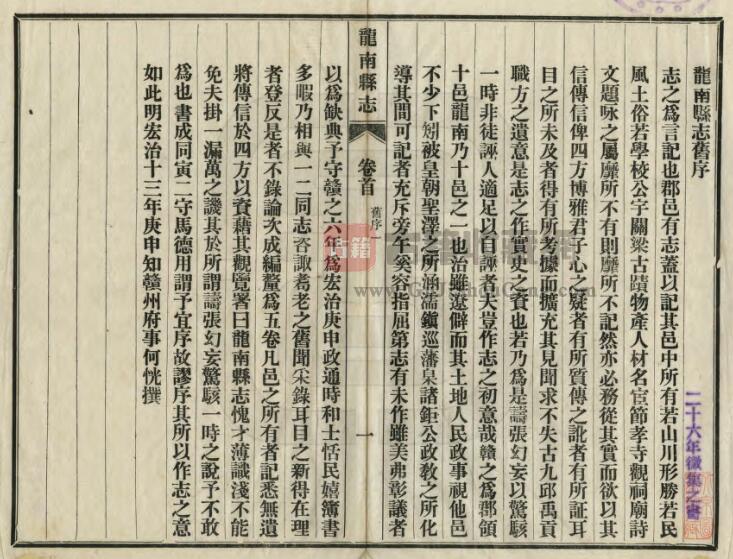 龍南縣志舊序
志之爲言記也郡邑有志蓋以記其邑中所有若山川形勝若民
風土俗若學校公宇關梁古蹟物產人材名宦節孝寺觀祠廟詩
文題咏之屬靡所不有則靡所不記然亦必務從其實而欲以其
信傳信俾四方博雅君子心之疑者有所質傳之訛者有所証耳
目之所未及者得有所考據而擴充其見聞求不失古九邱禹貢
職方之遺意是志之作實史之資也若乃爲是譸張幻妄以驚駭
一時非徒誣人適足以自誣者夫豈作志之初意哉贛之爲郡領
十邑龍南乃十邑之一也治雖遼僻而其土地人民政事視他邑
不少下矧被皇朝聖澤之所涵濡鎭巡藩臬諸鉅公政敎之所化
導其間可記者充斥旁午奚容指屈第志有未作雖美弗彰議者
龍南縣志
卷首
舊序
一
以爲缺典予守贛之六年爲宏治庚申政通時和士恬民嬉簿書
多暇乃相與一二同志咨諏耆老之舊聞采錄耳目之新得在理
者登反是者不錄論次成編釐爲五卷凡邑之所有者記悉無遺
將傳信於四方以資藉其觀覽署曰龍南縣志愧才薄識淺不能
免夫掛一漏萬之譏其於所謂譸張幻妄驚駭一時之說予不敢
爲也書成同寅二守馬德用謂予宜序故謬序其所以作志之意
如此明宏治十三年庚申知贛州府事何恍撰
二十六年徵集之書
古籍